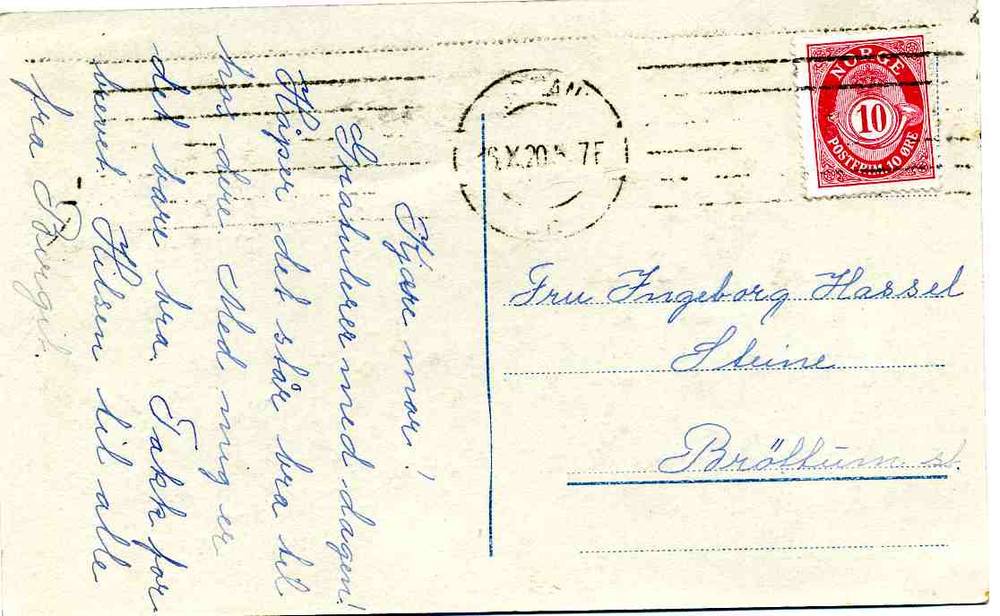 Kjære mor!
Gratulerer med dagen!
Håper det står bra til
hos dere. Med mig er
det bare bra. Takk for
brevet. Hilsen til alle
fra Borgit.
NORGE
10
POSTFRIM. 10 ØRE
X.20. 7E
Fru Ingeborg Hassel
Steine
Bröttum st.